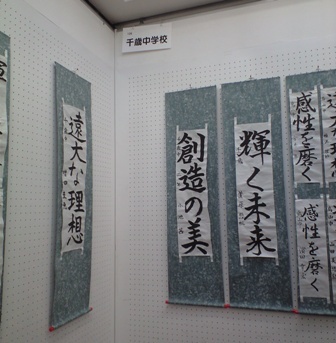 千歳中学校
遠大な理想
創造の美
輝く未来
感性を磨く
遠大な理想
感性を磨く